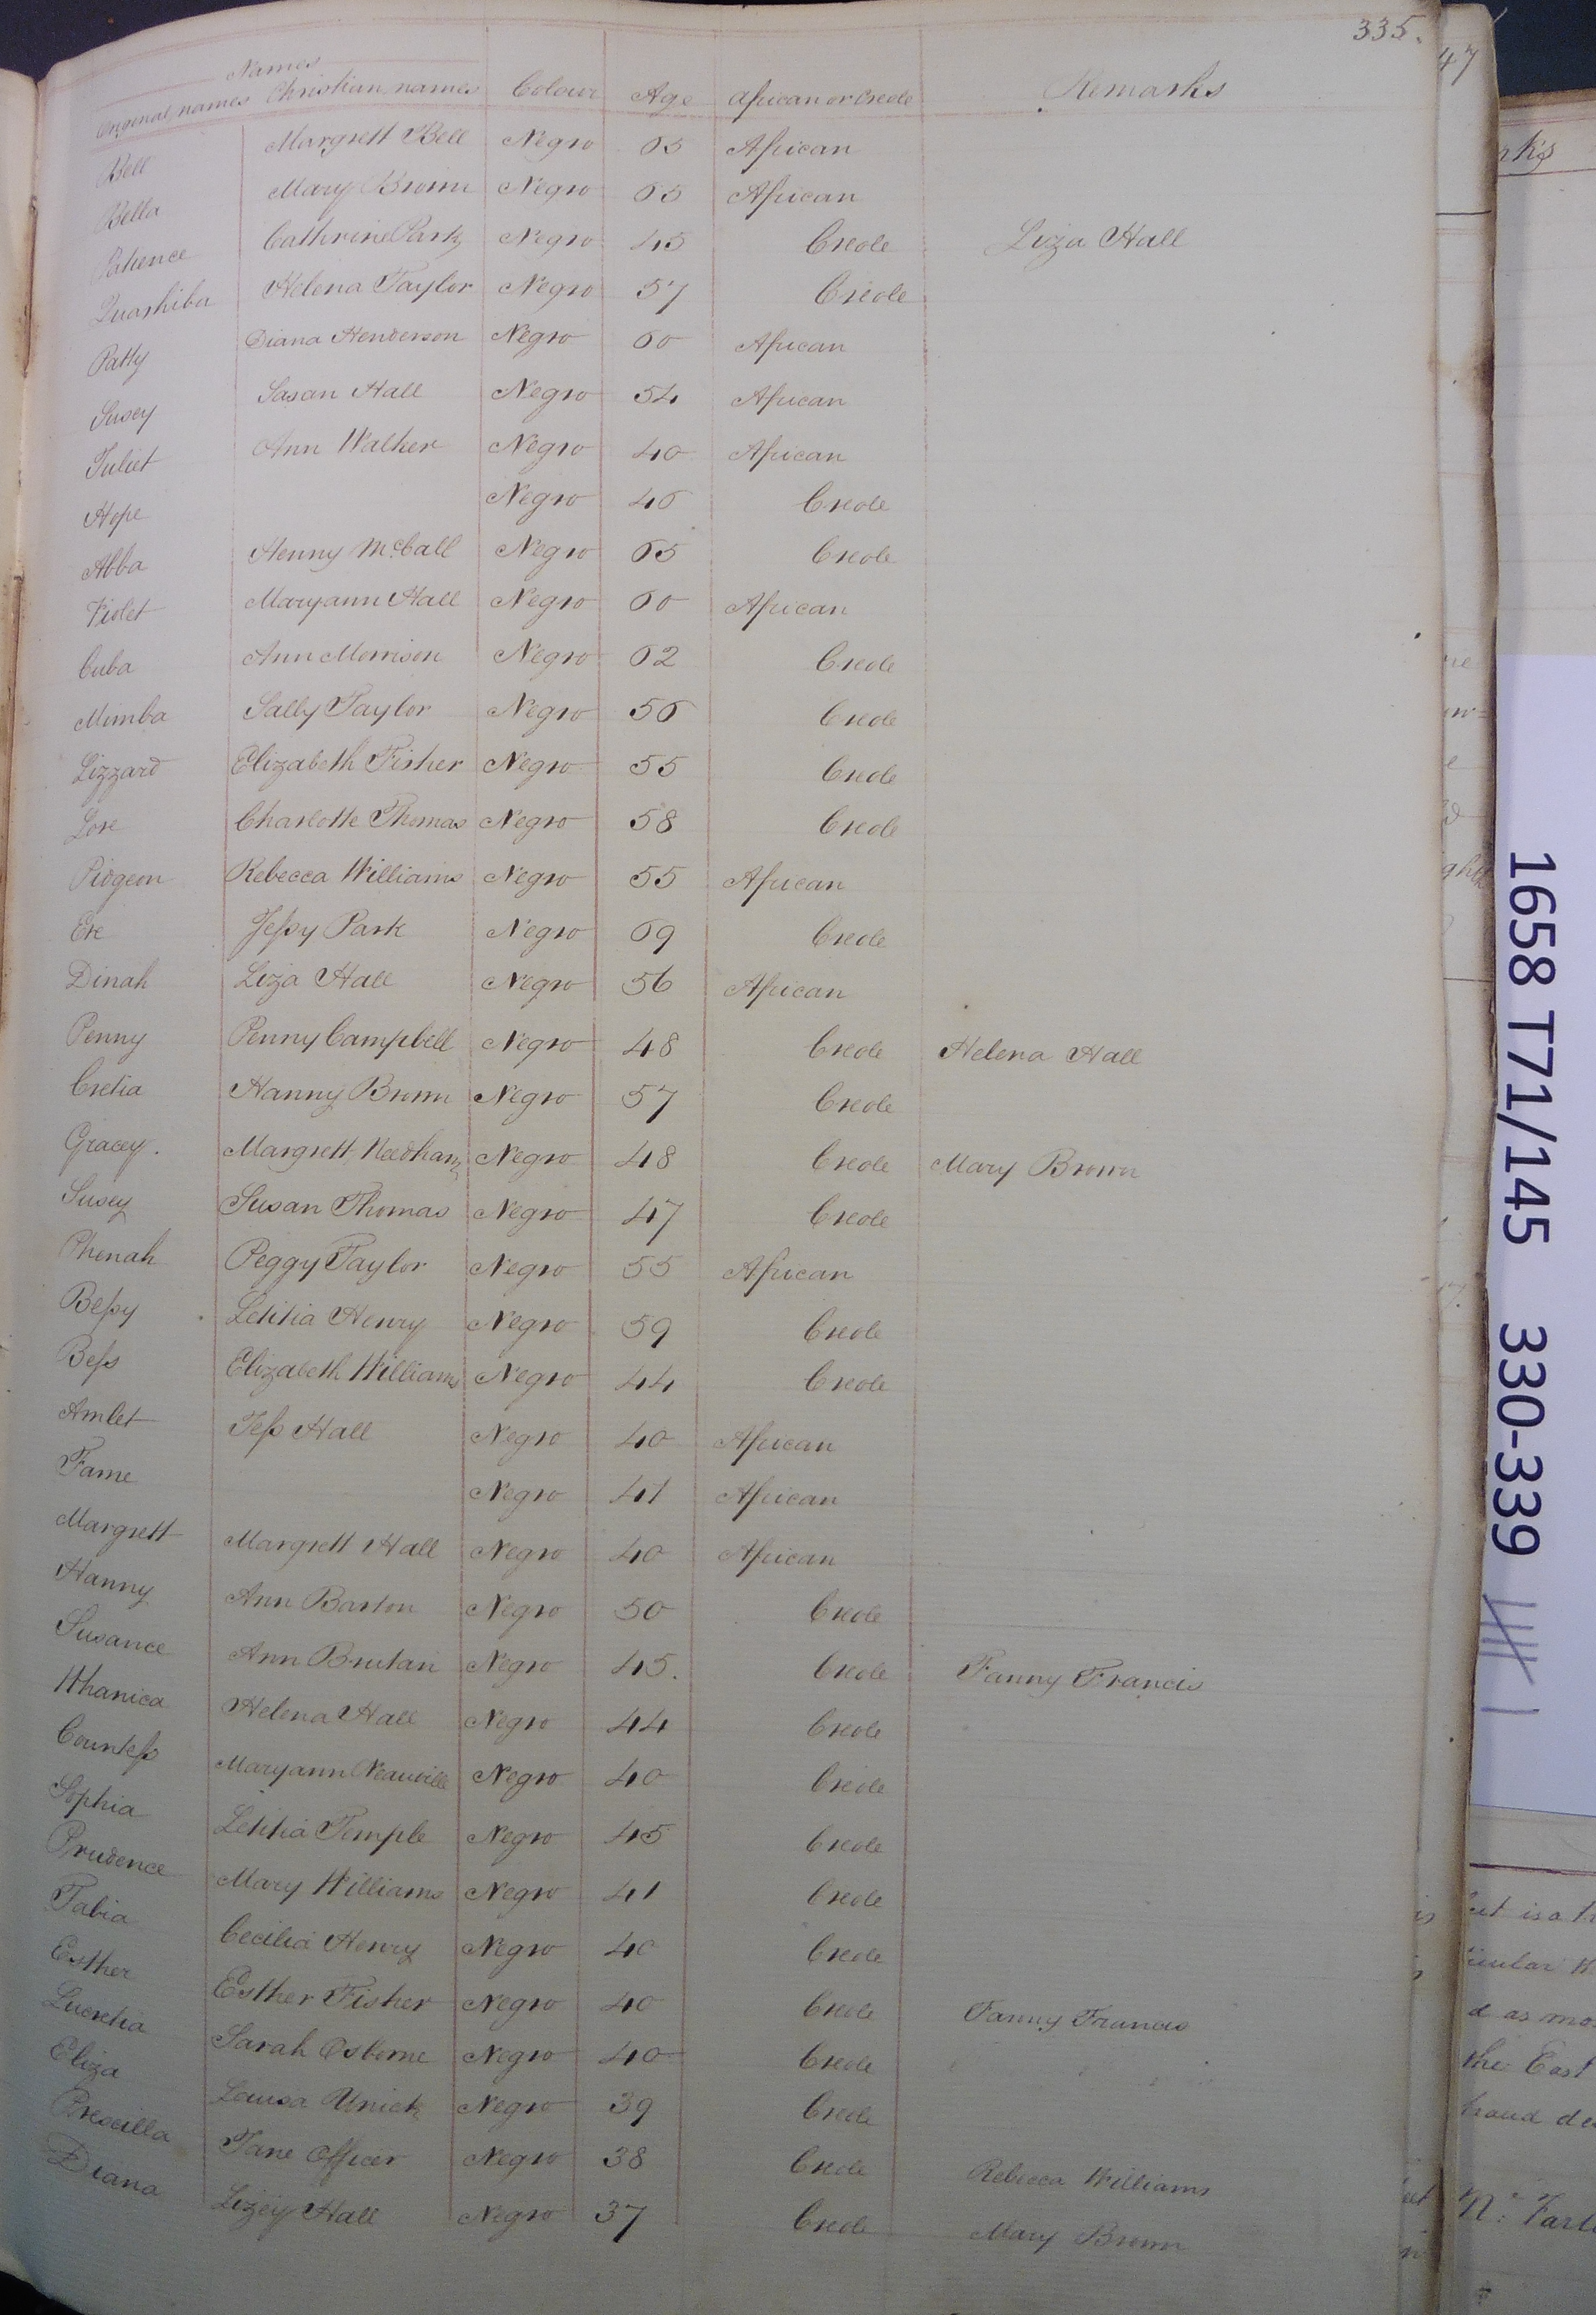 335.
Names
Original names Christian names Colour Age African or Creole Remarks
Bell Margrett Bell Negro 65 African
Bella Mary Brown Negro 65 African
Patience Cathrine Park Negro 45 Creole Liza Hall
Quashiba Helena Taylor Negro 57 Creole
Patty Diana Henderson Negro 60 African
Susey Sasan Hall Negro 54 African
Juliet Ann Walker Negro 40 African
Hope Negro 46 Creole
Abba Henny McCall Negro 65 Creole
Violet Maryann Hall Negro 60 African
Cuba Ann Morrison Negro 62 Creole
Mimba Sally Taylor Negro 56 Creole
Lizzard Elizabeth Fisher Negro 55 Creole
Love Charlotte Thomas Negro 58 Creole
Pidgeon Rebecca Williams Negro 55 African
Eve Jessy Park Negro 69 Creole
Dinah Liza Hall Negro 56 African
Penny Penny Campbell Negro 48 Creole Helena Hall
Cretia Hanny Brown Negro 57 Creole
Gracey. Margrett Needham Negro 48 Creole Mary Brown
Susey Susan Thomas Negro 47 Creole
Phenah Peggy Taylor Negro 55 African
Bessy Letitia Henry Negro 59 Creole
Bess Elizabeth Williams Negro 44 Creole
Amlet Jess Hall Negro 40 African
Fame Negro 41 African
Margrett Margrett Hall Negro 40 African
Hanny Ann Barton Negro 50 Creole
Susance Ann Brutan Negro 45. Creole Fanny Francis
Whanica Helena Hall Negro 44 Creole
Countess Maryann Neauville Negro 40 Creole
Sophia Letitia Temple Negro 45 Creole
Prudence Mary Williams Negro 41 Creole
Tabia Cecilia Henry Negro 40 Creole
Esther Esther Fisher Negro 40 Creole Fanny Francis
Lucretia Sarah Osborne Negro 40 Creole
Eliza Louisa Negro 39 Creole
Prescilla Jane Officer Negro 38 Creole Rebecca Williams
Diana Lizey Hall Negro 37 Creole Mary Brown
47
1658 T71/145 330-339
the East